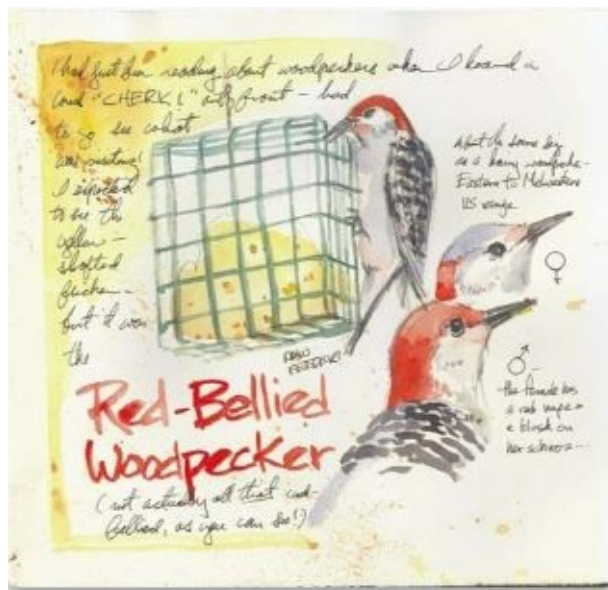 I had just been reading about woodpeckers when I heard a
loud "CHERK!" out front - had
to go see what
was visiting!
I expected
to see the
yellow-
shafted
flicker -
but it was
the
Red-Bellied
Woodpecker
(not actually all that red-
bellied, as you can see!)
RAW
about the same size
as a hairy woodpecker-
Eastern to Midwestern
US range
♀
♂
the female has
a red nape &
a blush on
her